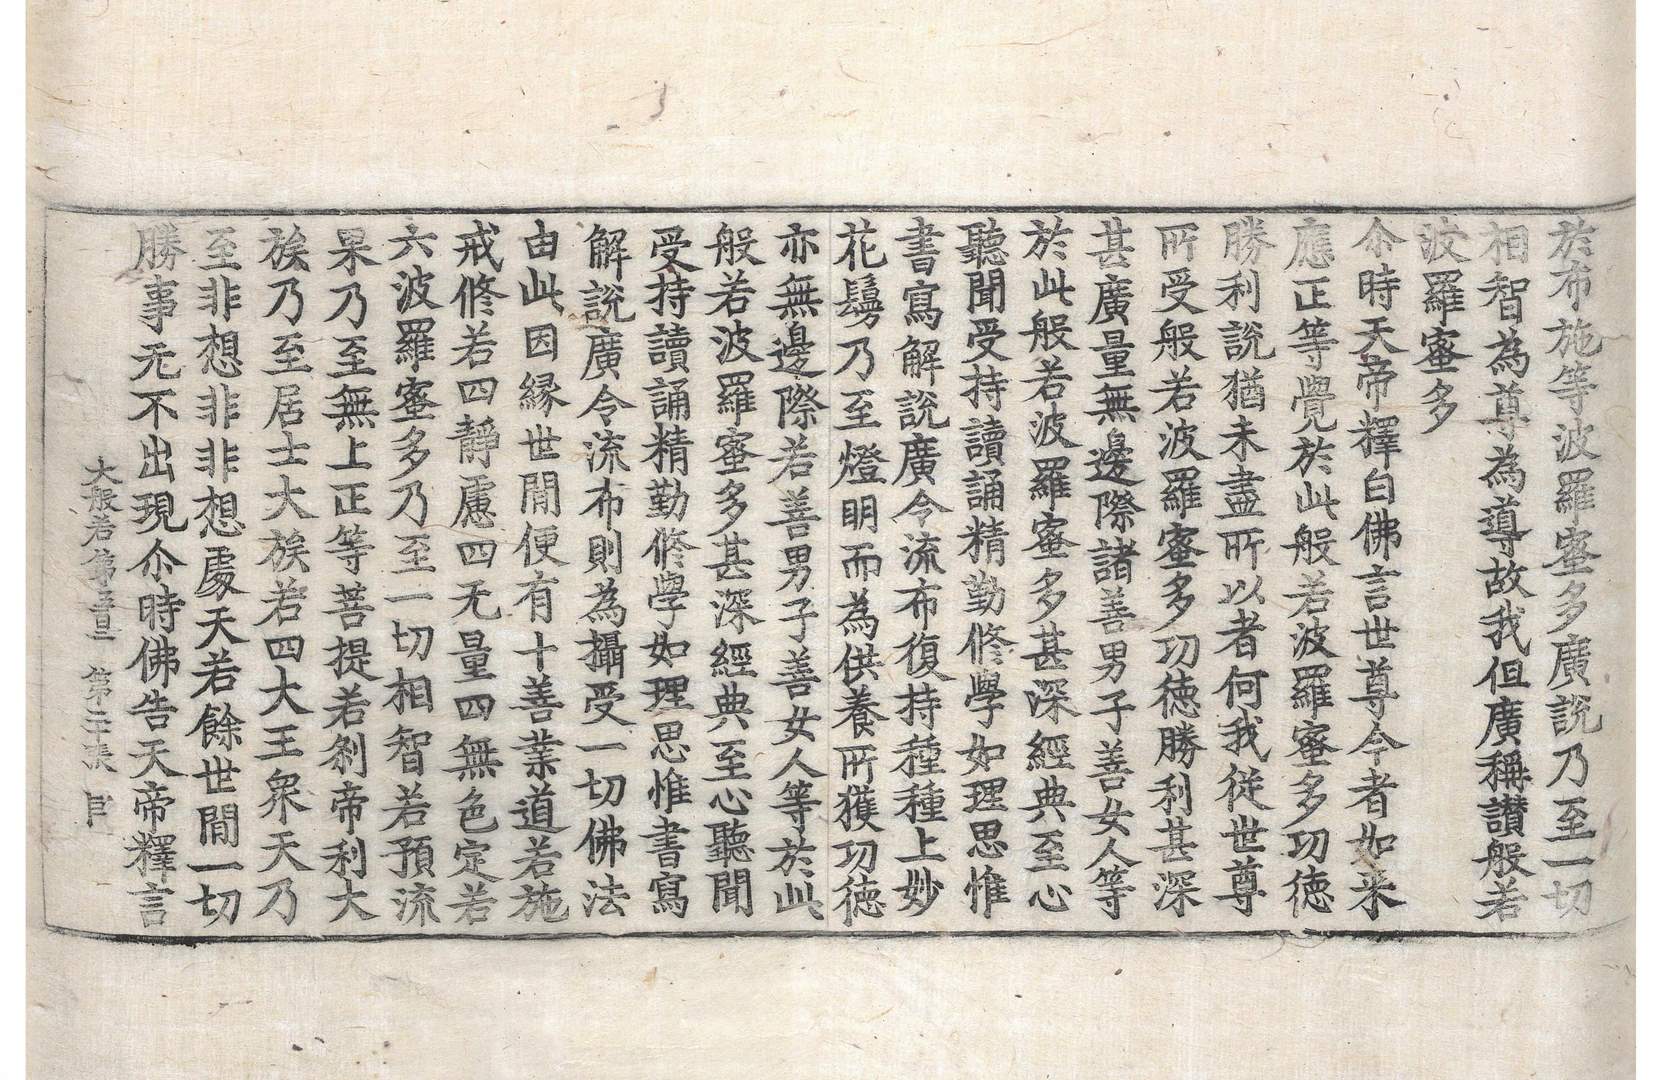 於布施等波羅蜜多廣說乃至一切
相智為尊為導故我但廣稱讃般若
波羅蜜多
尒時天帝釋白佛言世尊今者如来
應正等覺於此般若波羅蜜多功徳
勝利說猶未盡所以者何我從世尊
所受般若波羅蜜多功徳勝利甚深
甚廣量無邊際諸善男子善女人等
於此般若波羅蜜多甚深經典至心
聽聞受持讀誦精勤修學如理思惟
書寫解說廣令流布復持種種上妙
花鬘乃至燈明而為供養所獲功徳
亦無邊際若善男子善女人等於此
般若波羅蜜多甚深經典至心聽聞
受持讀誦精勤修學如理思惟書寫
解說廣令流布則為攝受一切佛法
由此因縁世閒便有十善業道若施
戒修若四靜慮四无量四無色定若
六波羅蜜多乃至一切相智若預流
果乃至無上正等菩提若刹帝利大
族乃至居士大族若四大王衆天乃
至非想非非想處天若餘世閒一切
勝事无不出現尒時佛告天帝釋言
大般若第 第 張